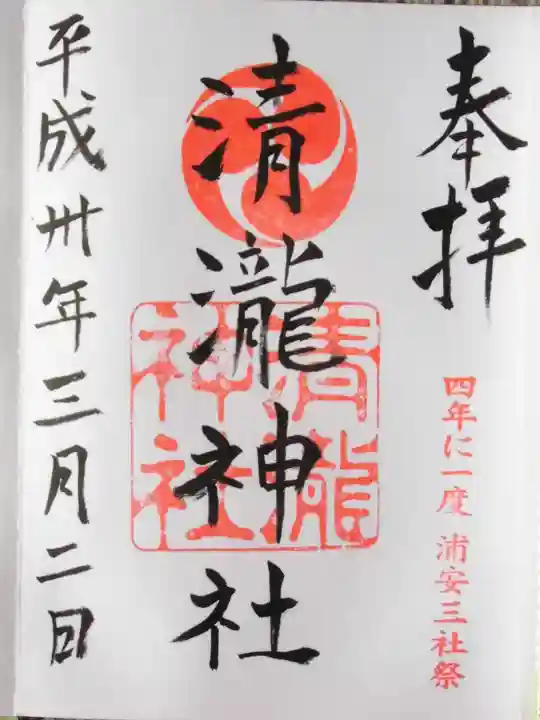 奉拝
四年に一度 浦安三社祭
清瀧神社
清瀧
神社
平成卅年三月二日